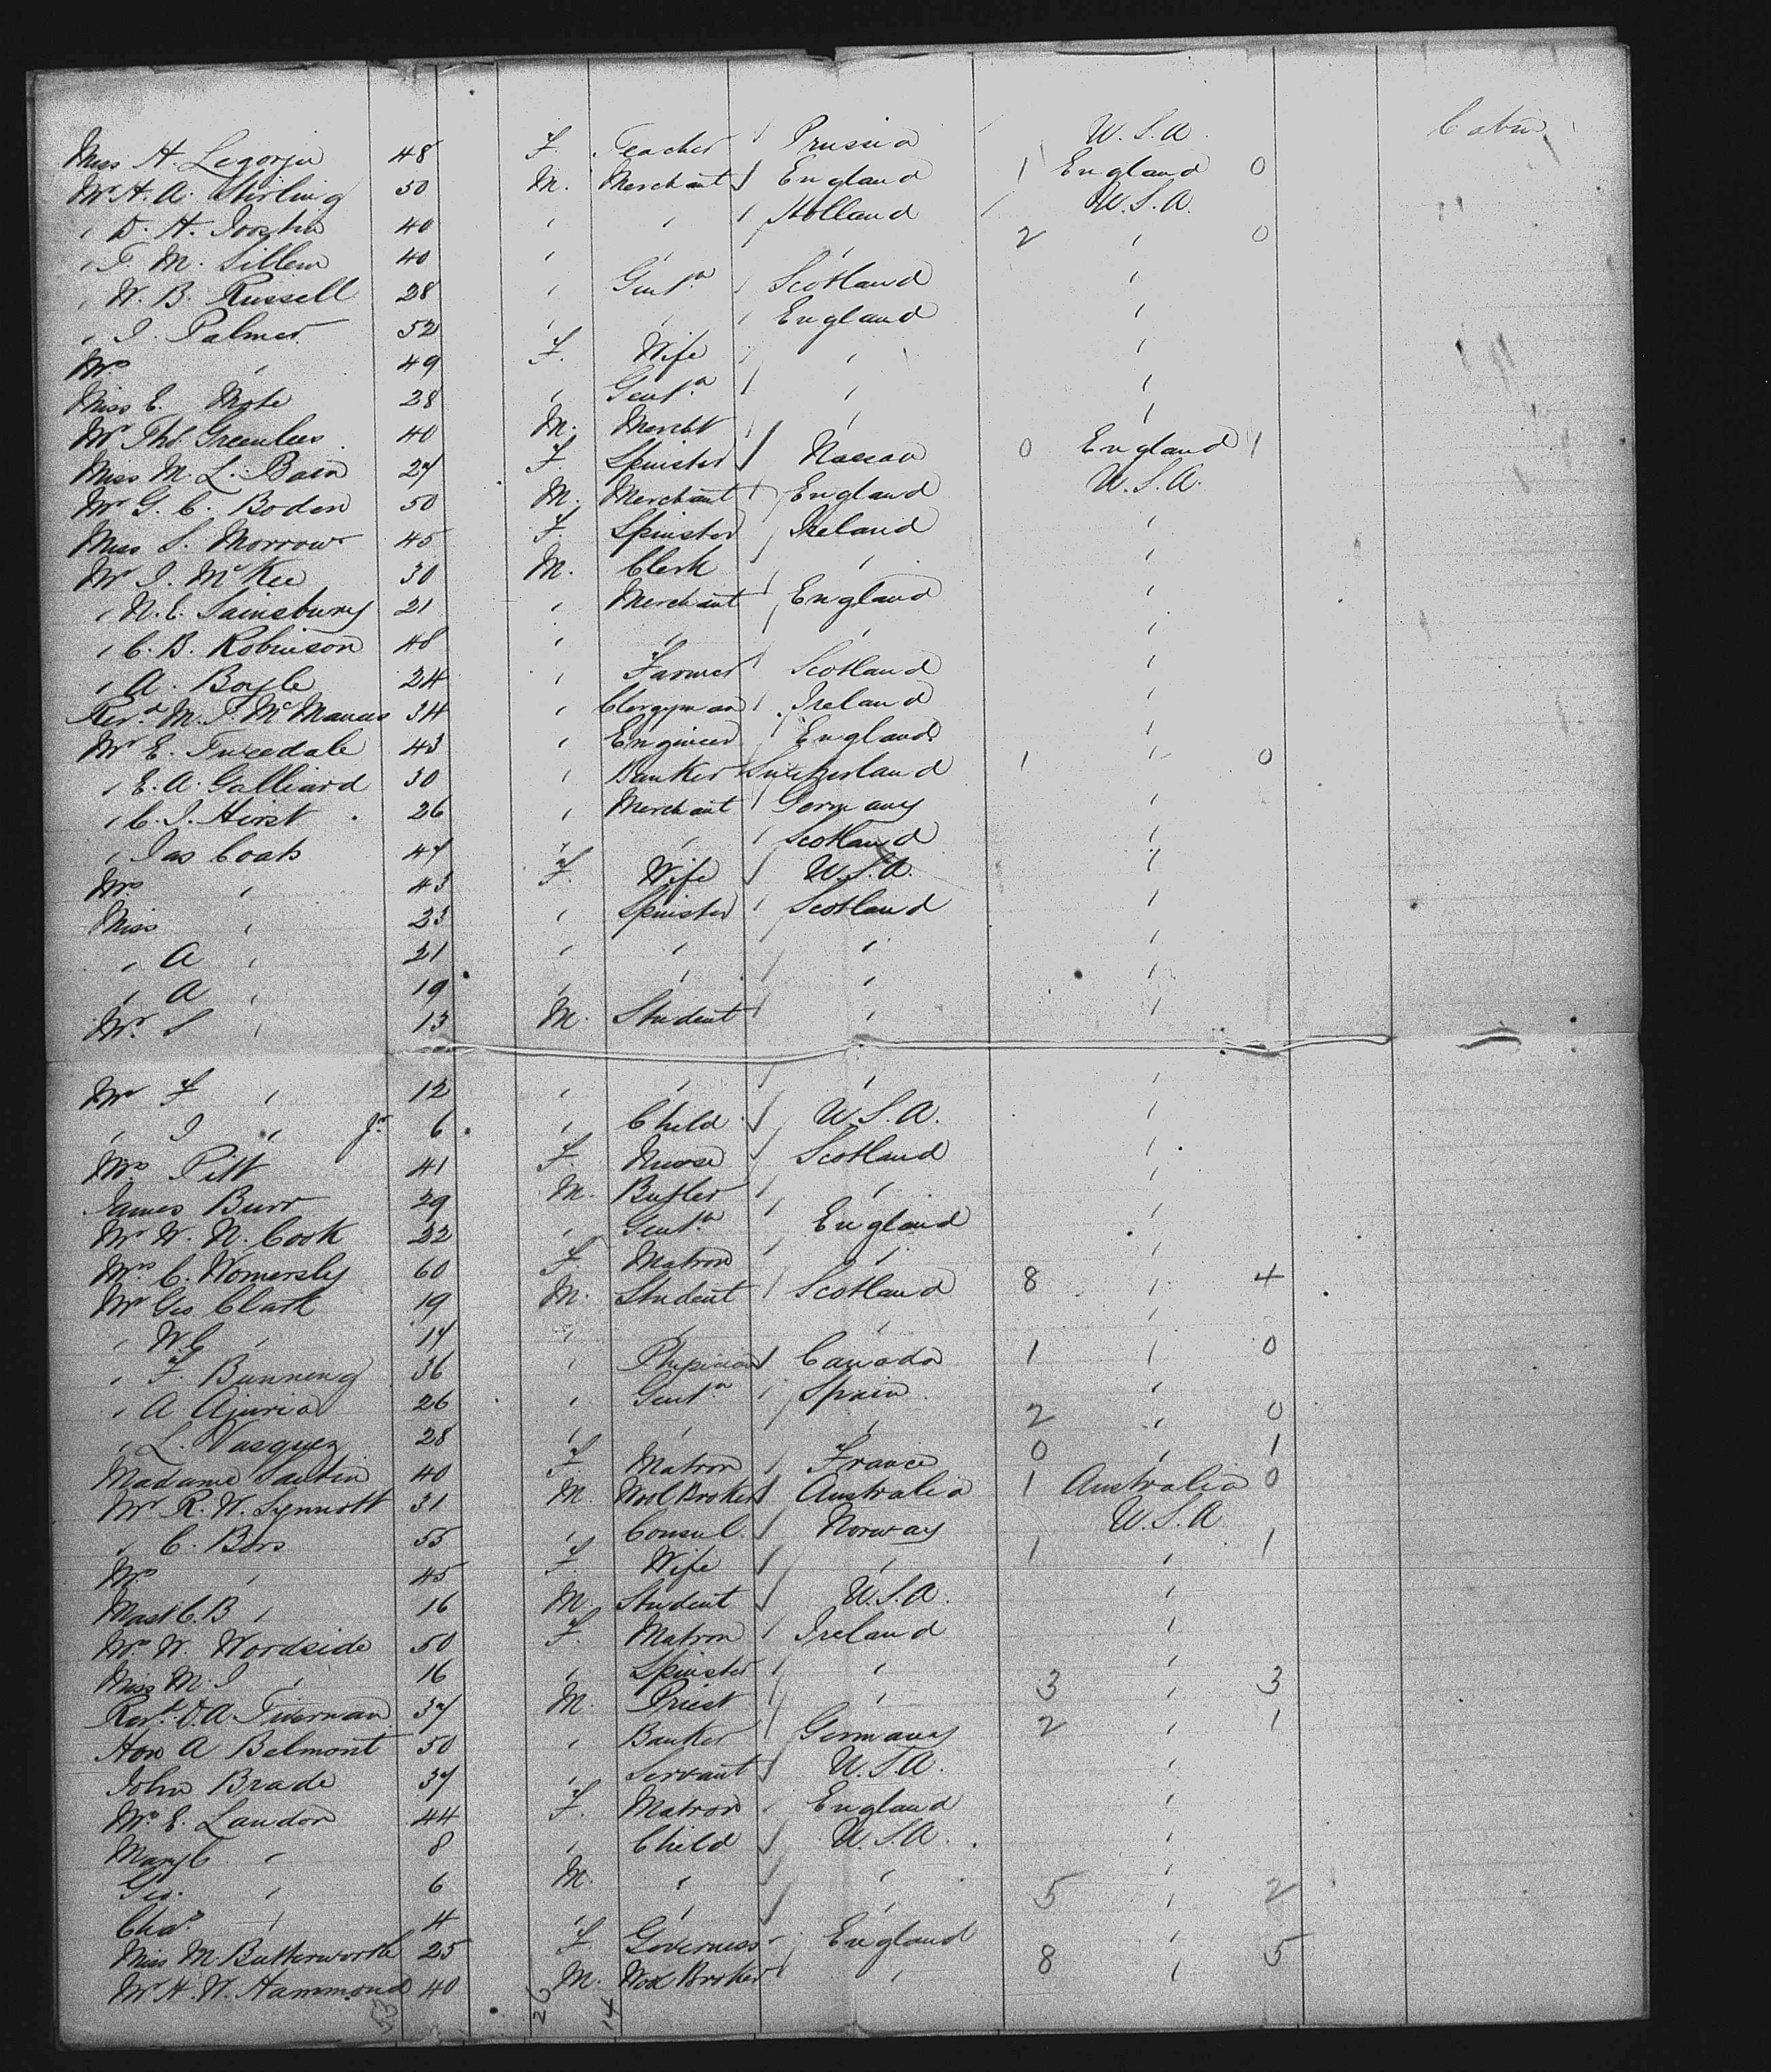 Cabin
Miss H. Legorju 48 F. Teacher Prussia U.S.A.
Mr H. A. Stirling 50 M. Merchant England 1 England 0
" D. H. Joostin 40 " " Holland U.S.A.
" F. M. Sillem 40 " " " 2 " 0
" W. B. Russell 28 " Gentn Scotland "
" J. Palmer 52 " " England "
Mrs " 49 F. Wife " "
Miss E. Mote 28 " Gentn " "
Mr Thos Greenlees 40 M. Mercht " "
Miss M. L. Bain 27 F. Spinster Nassau 0 England 1
Mr G. C. Boden 50 M. Merchant England U.S.A.
Miss S. Morrow 45 F. Spinster Ireland "
Mr J. McKee 30 M. Clerk " "
" N. E. Sainsbury 21 " Merchant England "
" C. B. Robinson 48 " " " "
" A. Boyle 24 " Farmer Scotland "
Revd M. P. McManus 34 " Clergyman Ireland "
Mr E. Tweedale 43 " Engineer England "
" E. A. Galliard 30 " Banker Switzerland 1 " 0
" C. J. Hirst 26 " Merchant Germany "
" Jas Coats 47 " " Scotland "
Mrs " 43 F. Wife U.S.A. "
Miss " 23 " Spinster Scotland "
" A " 21 " " " "
" A " 19 " " " "
Mr S " 13 M. Student " "
Mr F " 12 " " " "
" J " Jr 6 " Child U.S.A. "
Mrs Pitt 41 F. Nurse Scotland "
James Burr 29 M. Butler " "
Mr W. N. Cook 22 " Gentn England "
Mrs C. Womersly 60 F. Matron " "
Mr Geo Clark 19 M. Student Scotland 8 " 4
" W. C " 17 " " " "
" F. Bunning 36 " Physician Canada 1 " 0
" A Ajuria 26 " Gentn Spain "
" L. Vasquez 28 " " " 2 " 0
Madame Santin 40 F. Matron France 0 " 1
Mr R. W. Synnott 31 M. Wool Broker Australia 1 Australia 0
" C. Bors 55 " Consul Norway U.S.A
Mrs " 45 F. Wife " 1 " 1
Mast C. B " 16 M. Student U.S.A. "
Mrs W. Woodside 50 F. Matron Ireland "
Miss M. J " 16 " Spinster " "
Revd D. A. Tiernan 37 M. Priest " 3 " 3
Hon A Belmont 50 " Banker Germany 2 " 1
John Brade 37 " Servant U.S.A. "
Mrs E. Landon 44 F. Matron England "
Mary C " 8 " Child U.S.A. "
Geo. " 6 M. " " "
Chas " 4 " " " 5 " 2
Miss M Butterworth 25 F Governess England "
Mr H. W. Hammond 40 M. Wool Broker " 8 " 5
53 26 14